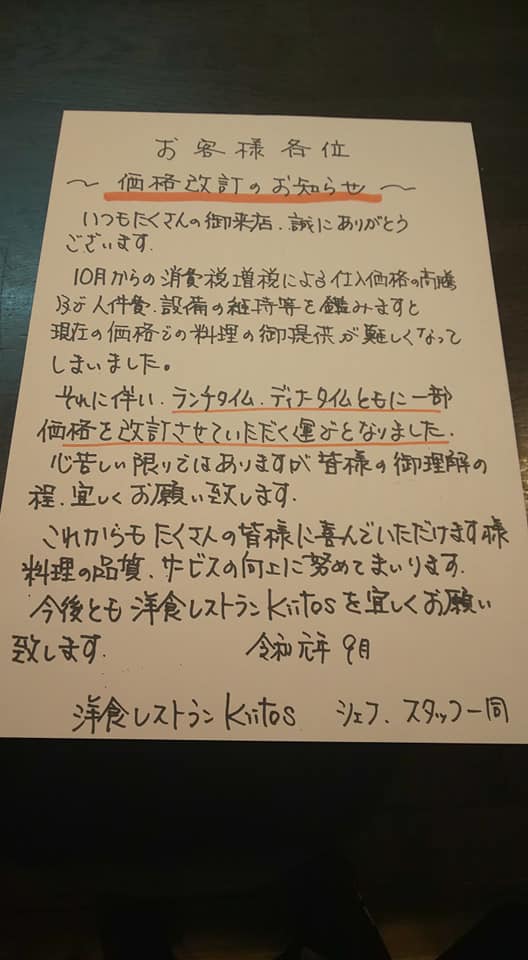 お客様各位
～価格改訂のお知らせ～
いつもたくさんの御来店、誠にありがとう
ございます.
10月からの消費税増税による仕入価格の高騰
及び人件費、設備の維持等を鑑みますと
現在の価格での料理の御提供が難しくなって
しまいました。
それに伴い、ランチタイム、ディナータイムともに一部
価格を改訂させていただく運びとなりました.
心苦しい限りではありますが皆様の御理解の
程、宜しくお願い致します.
これからもたくさんの皆様に喜んでいただけます様
料理の品質、サービスの向上に努めてまいります.
今後とも洋食レストランKiitosを宜しくお願い
致します. 令和元年9月
洋食レストランKiitos シェフ、スタッフ一同